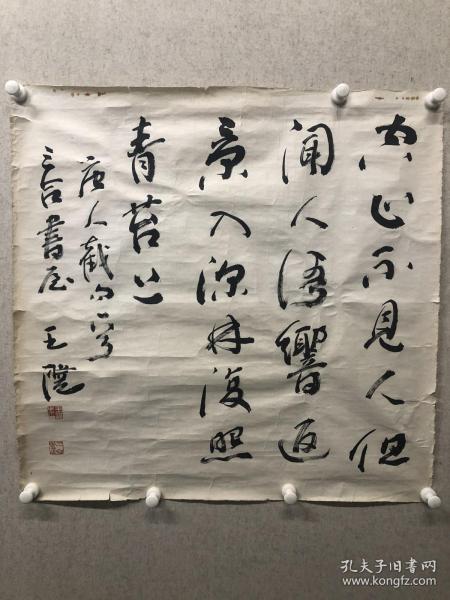 空山不见人但
闻人语響返
景入深林復照
青苔上
唐人截句
三石書屋 王
孔夫子旧书网
www.kongfz.com